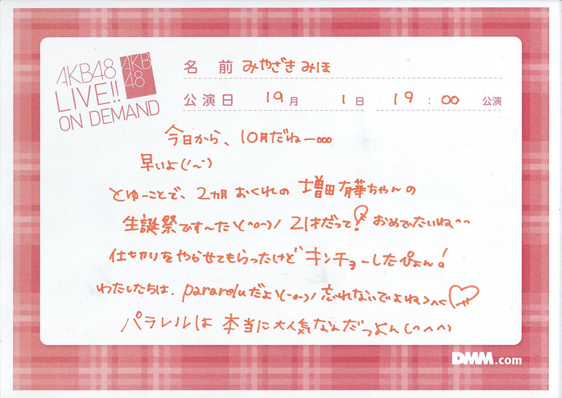 AKB48
LIVE!!
ON DEMAND
AKB
48
名 前 みやざき みほ
公演日 10月 1日 19:00 公演
今日から、10月だねー∞
早いよ(´~`)
とゆーことで、2ヵ月おくれの 増田有華ちゃんの
生誕祭です~た\(^o^)/ 21才だって! おめでたいね^^
仕切りをやらせてもらったけど キンチョーしたぴょん!
わたしたちは、parareluだよ\(^o^)/ 忘れないでよね>^< ♡
パラレルは 本当に大人気なんだっよん(^^^)
DMM.com